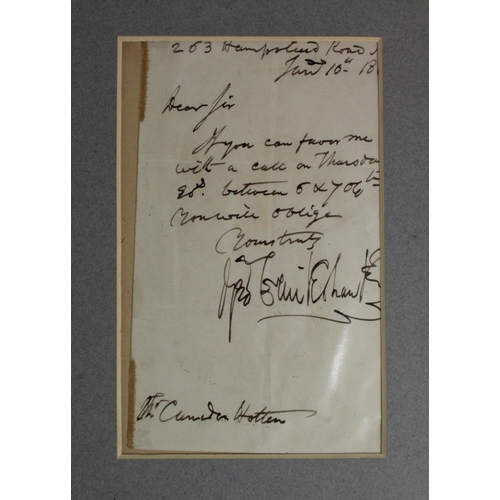 263 Hampstead Road
Jany 10th 18
Dear Sir
If you can favor me
with a call on Thursda
between 6 & 7 o'c
You will oblige
Yours truly
Geo Cruikshank
Mr Camden Hotten